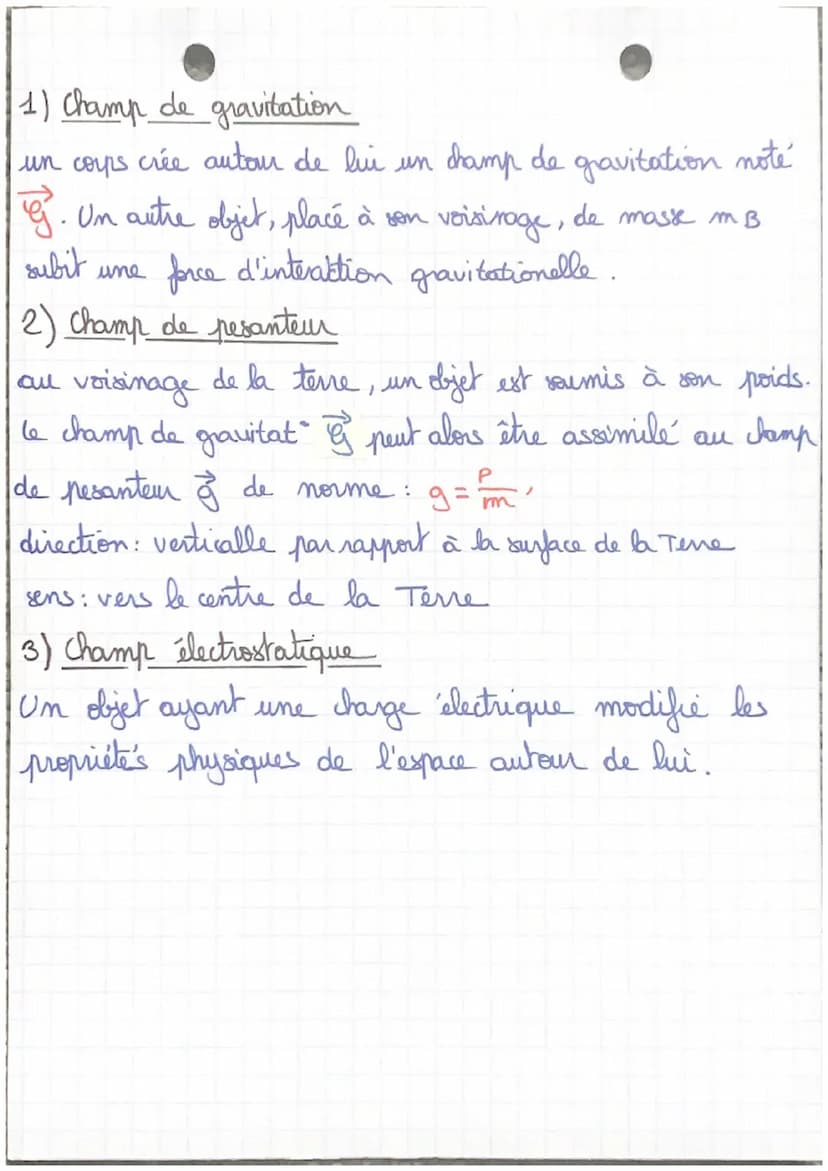 1) Champ de gravitation
un corps crée autour de lui un champ de gravitation noté
𝒢⃗. Un autre objet, placé à son voisinage, de masse m B
subit une force d'interaktion gravitationelle.
2) Champ de pesanteur
au voisinage de la terre, un objet est soumis à son poids.
le champ de gravitat° 𝒢⃗ peut alors être assimilé au champ
de pesanteur g⃗ de norme : g = P/m,
direction : verticalle par rapport à la surface de la Terre
sens : vers le centre de la Terre
3) Champ électrostatique
Un objet ayant une charge électrique modifie les
propriétés physiques de l'espace autour de lui.